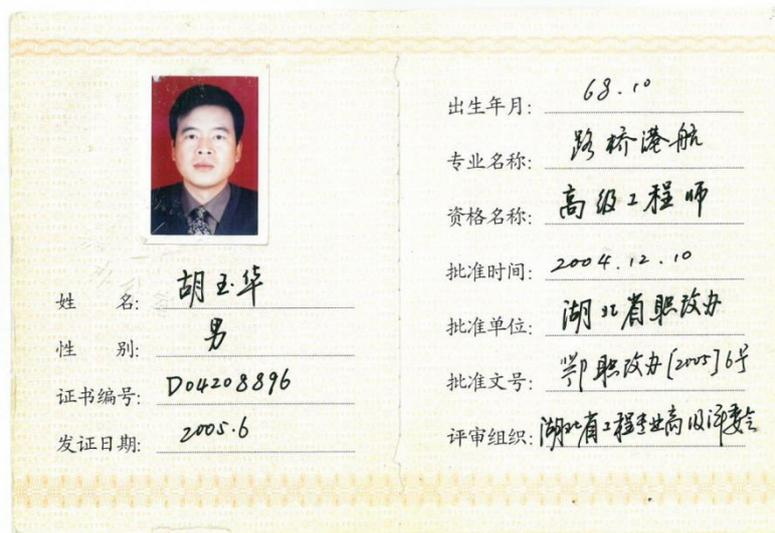 姓 名: 胡玉华
性 别: 男
证书编号: D04208896
发证日期: 2005.6
出生年月: 68.10
专业名称: 路桥港航
资格名称: 高级工程师
批准时间: 2004.12.10
批准单位: 湖北省职改办
批准文号: 鄂职改办[2005]6号
评审组织: 湖北省工程专业高级评委会